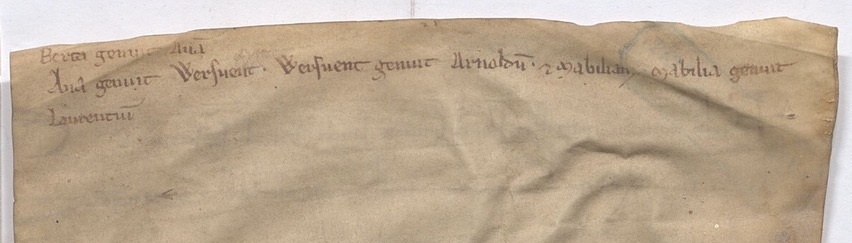 Berta genuit Auā
Auā genuit Wersuent. Wersuent genuit Arnoldū. ⁊ Mabiliam Mabilia genuit
Laurentiū